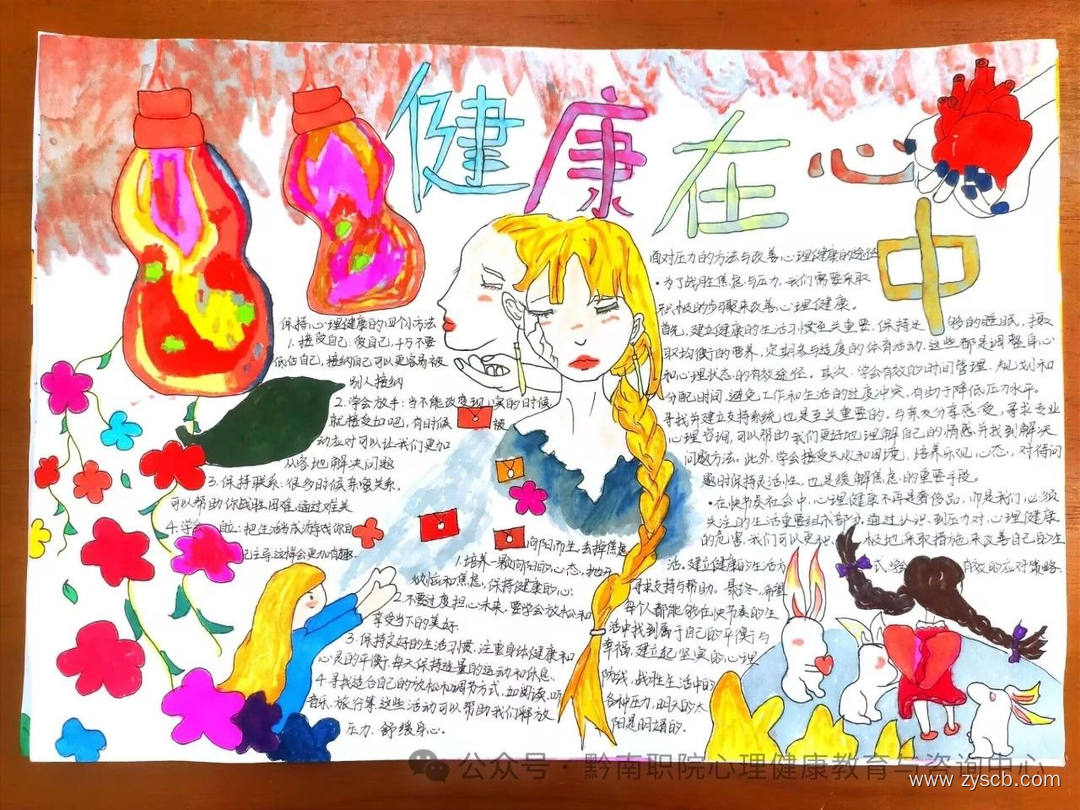 健康在心中
保持心理健康的四个方法
1.接受自己:爱自己,千万不要
低估自己,接纳自己可以更容易被
别人接纳
2.学会放手:当不能改变现实的时候
就接受如吧,有时候被
动应对可以让我们更加
从容地解决问题
3.保持联系:很多时候亲密关系,
可以帮助你战胜困难,通过难关
4.学会自拉:把生活当成游戏你自
己主导,这样会更加有趣.
向阳而生,去掉焦虑
1.培养一颗向阳的心态,抛开
忧伤和焦虑,保持健康的心;
2.不要过度担心未来,要学会放松和
享受当下的美好.
3.保持良好的生活习惯,注重身体健康和
心灵的平衡,每天保持适量的运动和休息、
4.寻找适合自己的放松和调节方式,如阅读、听
音乐、旅行等,这些活动可以帮助我们释放
压力,舒缓身心.
面对压力的方法与改善心理健康的途径
·为了战胜焦虑与压力,我们需要采取
积极的步骤来改善心理健康.
首先,建立健康的生活习惯至关重要.保持足够的睡眠,摄
取均衡的营养,定期参与适度的体育活动,这些都是调整身心
和心理状态的有效途径.其次,学会有效的时间管理、规划和
分配时间,避免工作和生活的过度冲突,有助于降低压力水平.
寻找并建立支持系统也是至关重要的,与亲友分享感受,寻求专业
心理咨询,可以帮助我们更好地理解自己的情感并找到解决
问题方法,此外,学会接受失败和困境,培养乐观心态,对待问
题时保持灵活性,也是缓解焦虑的重要手段。
·在快节奏社会中,心理健康不再是奢侈品,而是我们必须
关注的生活重要组成部分,通过认识到压力对心理健康
的危害,我们可以更积极地采取措施来改善自己的生
活.建立健康的生活方式,学会有效的应对策略,
寻求支持与帮助,最终,希望
每个人都能够在快节奏的生
活中找到属于自己的平衡与
幸福,建立起坚实的心理
防线,战胜生活中的
各种压力,明天的太
阳是明媚的.
公众号·黔南职院心理健康教育与咨询中心
www.zyscb.com